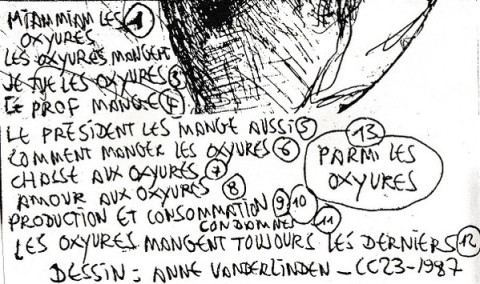 MIAM MIAM LES 1
OXYURES
LES OXYURES MANGENT
JE TUE LES OXYURES 3
LE PROF MANGE 4
LE PRÉSIDENT LES MANGE AUSSI 5
COMMENT MANGER LES OXYURES 6
CHASSE AUX OXYURES 7
AMOUR AUX OXYURES 8
PRODUCTION ET CONSOMMATION 9 10
CONDAMNÉS 11
LES OXYURES MANGENT TOUJOURS LES DERNIERS 12
13
PARMI LES
OXYURES
DESSIN : ANNE VANDERLINDEN - CC23-1987